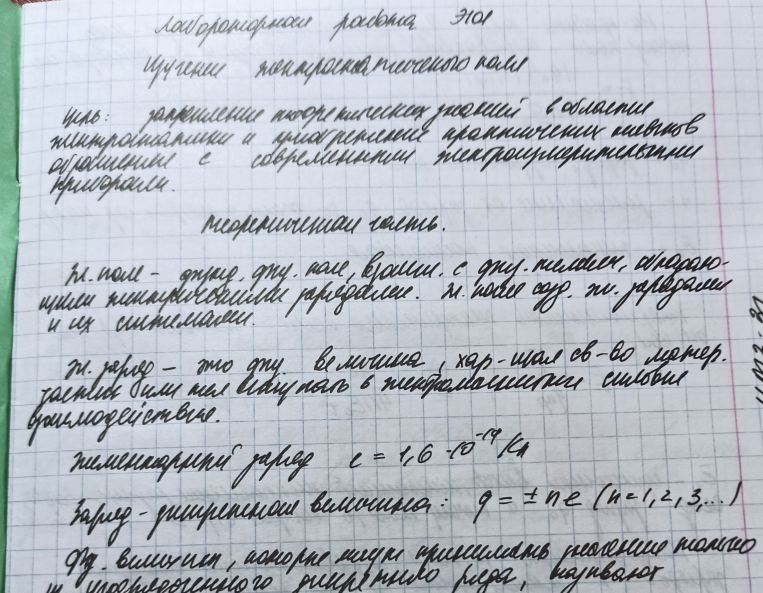 Лабораторная работа Э101
Изучение электростатического поля
Цель: закрепление теоретических знаний в области
электростатики и приобретение практических навыков
обращения с современными электроизмерительными
приборами.
Теоретическая часть.
Эл. поле – фунд. физ. поле, взаим. с физ. телами, обладаю-
щими электрическими зарядами. Эл. поле созд. эл. зарядами
и их системами.
Эл. заряд – это физ. величина, хар-щая св-во матер.
частиц или тел вступать в электромагнитные силовые
взаимодействие.
Элементарный заряд e = 1,6 · 10⁻¹⁹ Кл
Заряд - дискретная величина: q = ± ne (n = 1, 2, 3,...)
Физ. величины, которые могут принимать значение только
упорядоченного дискретного ряда, называют